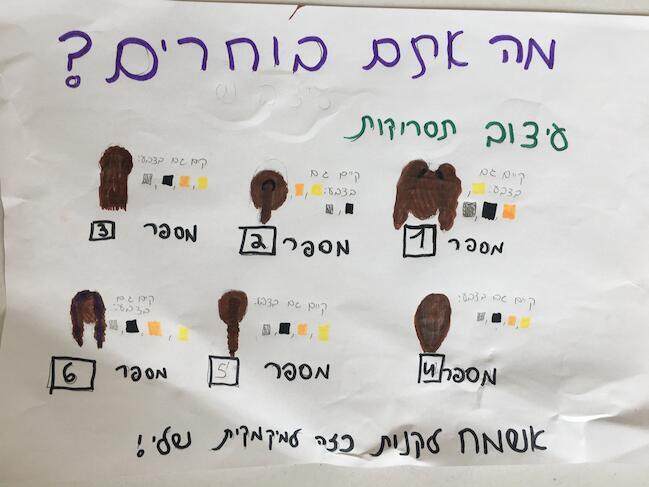 מה אתם בוחרים?
עיצוב תסרוקות
קיים גם בצבע:
מספר 1
קיים גם בצבע:
מספר 2
קים גם בצבע:
מספר 3
קים גם בצבע:
מספר 4
קיים גם בצבע:
מספר 5
קים גם בצבע:
מספר 6
אשמח לקנות כזה למיקמקית שלי!